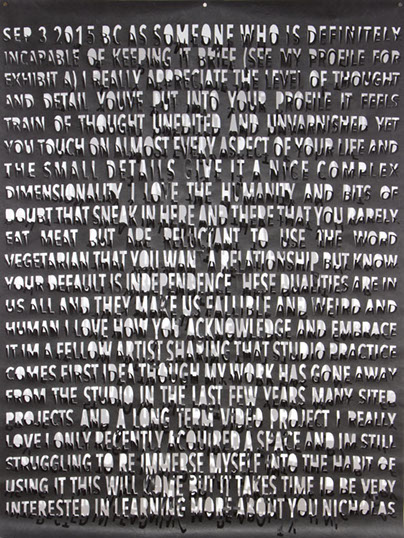 SEP 3 2015 BC AS SOMEONE WHO IS DEFINITELY
INCAPABLE OF KEEPING IT BRIEF (SEE MY PROFILE FOR
EXHIBIT A) I REALLY APPRECIATE THE LEVEL OF THOUGHT
AND DETAIL YOUVE PUT INTO YOUR PROFILE IT FEELS
TRAIN OF THOUGHT UNEDITED AND UNVARNISHED YET
YOU TOUCH ON ALMOST EVERY ASPECT OF YOUR LIFE AND
THE SMALL DETAILS GIVE IT A NICE COMPLEX
DIMENSIONALITY I LOVE THE HUMANITY AND BITS OF
DOUBT THAT SNEAK IN HERE AND THERE THAT YOU RARELY
EAT MEAT BUT ARE RELUCTANT TO USE THE WORD
VEGETARIAN THAT YOU WANT A RELATIONSHIP BUT KNOW
YOUR DEFAULT IS INDEPENDENCE THESE DUALITIES ARE IN
US ALL AND THEY MAKE US FALLIBLE AND WEIRD AND
HUMAN I LOVE HOW YOU ACKNOWLEDGE AND EMBRACE
IT IM A FELLOW ARTIST SHARING THAT STUDIO PRACTICE
COMES FIRST IDEA THOUGH MY WORK HAS GONE AWAY
FROM THE STUDIO IN THE LAST FEW YEARS MANY SITED
PROJECTS AND A LONG TERM VIDEO PROJECT I REALLY
LOVE I ONLY RECENTLY ACQUIRED A SPACE AND IM STILL
STRUGGLING TO RE IMMERSE MYSELF INTO THE HABIT OF
USING IT THIS WILL COME BUT IT TAKES TIME ID BE VERY
INTERESTED IN LEARNING MORE ABOUT YOU NICHOLAS